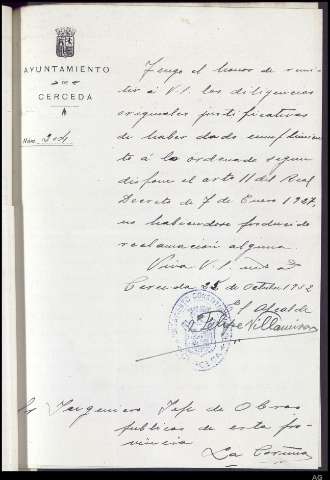 AYUNTAMIENTO
DE
CERCEDA
Núm. 204
Tengo el honor de remi-
tir á V.I. las diligencias
originales justificativas
de haber dado cumplimien-
to á lo ordenado segun
dispone el artº 11 del Real
Decreto de 7 de Enero 1927,
no habiendose producido
reclamacion alguna.
Viva V.I. m. a.
Cerceda 25 de Octubre 1932
El Alcalde
Felipe Villamisar
Sr Ingeniero Jefe de Obras
publicas de esta pro-
vincia
La Coruña
AG